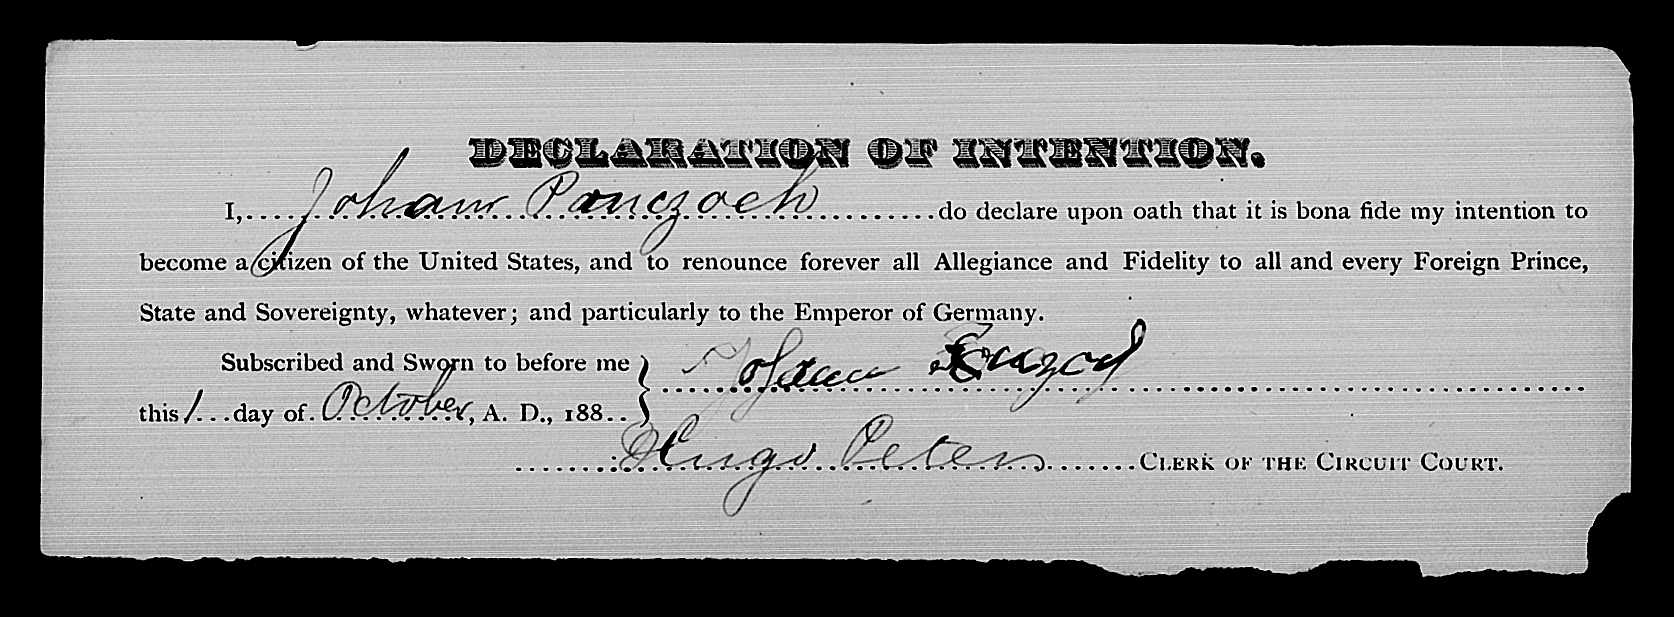 DECLARATION OF INTENTION.
I, Johann Panczoch do declare upon oath that it is bona fide my intention to
become a citizen of the United States, and to renounce forever all Allegiance and Fidelity to all and every Foreign Prince,
State and Sovereignty, whatever; and particularly to the Emperor of Germany.
Subscribed and Sworn to before me } Johann
this 1 day of October, A. D., 188
Hugo Peters CLERK OF THE CIRCUIT COURT.